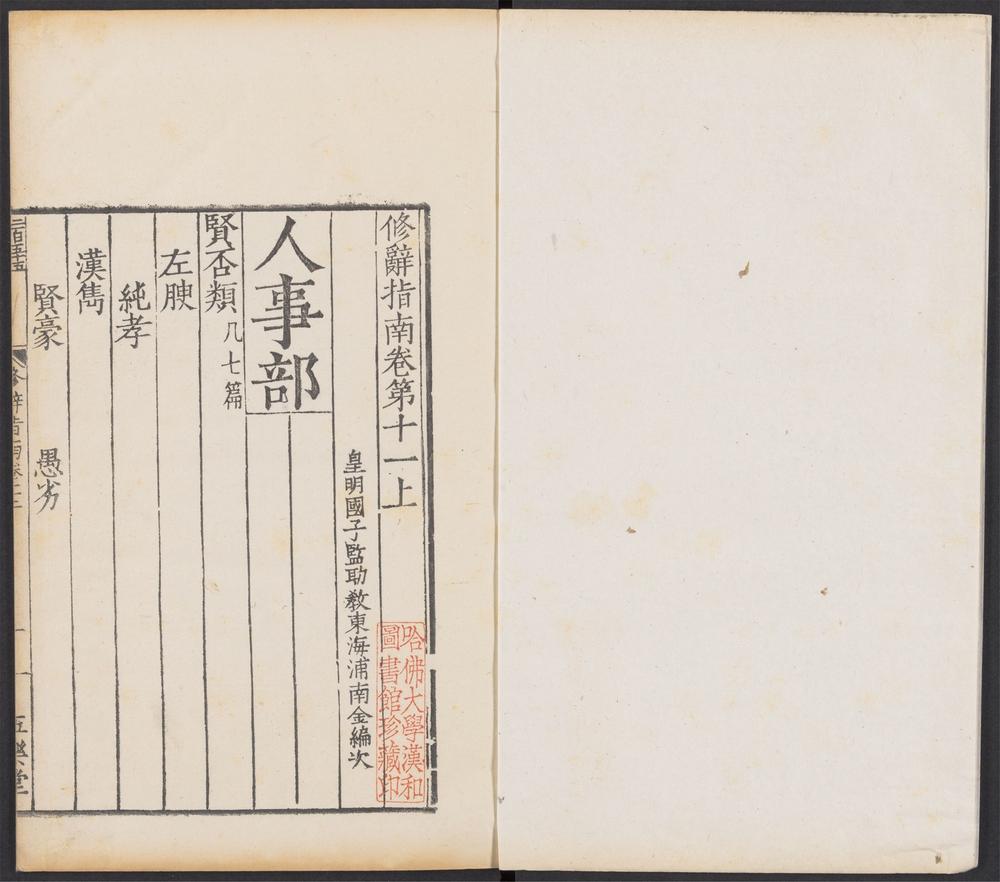 修辭指南卷第十一上
皇明國子監助教東海浦南金編次
人事部
賢否類凡七篇
左腴
純孝
漢雋
賢豪 愚劣
五樂堂
哈佛大學漢和
圖書館珍藏印